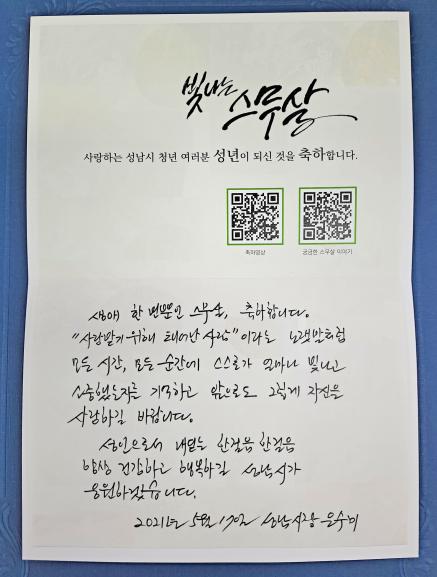 빛나는
스무살
사랑하는 성남시 청년 여러분 성년이 되신 것을 축하합니다.
축하영상
궁금한 스무살 이야기
생애 한 번뿐인 스무살, 축하합니다.
"사랑받기 위해 태어난 사람"이라는 노랫말처럼
모든 시간, 모든 순간에 스스로가 얼마나 빛나고
소중했는지를 기억하고 앞으로도 그렇게 자신을
사랑하길 바랍니다.
성인으로서 내딛는 한걸음 한걸음
항상 건강하고 행복하길 성남시가
응원하겠습니다.
2021년 5월 17일 성남시장 은수미